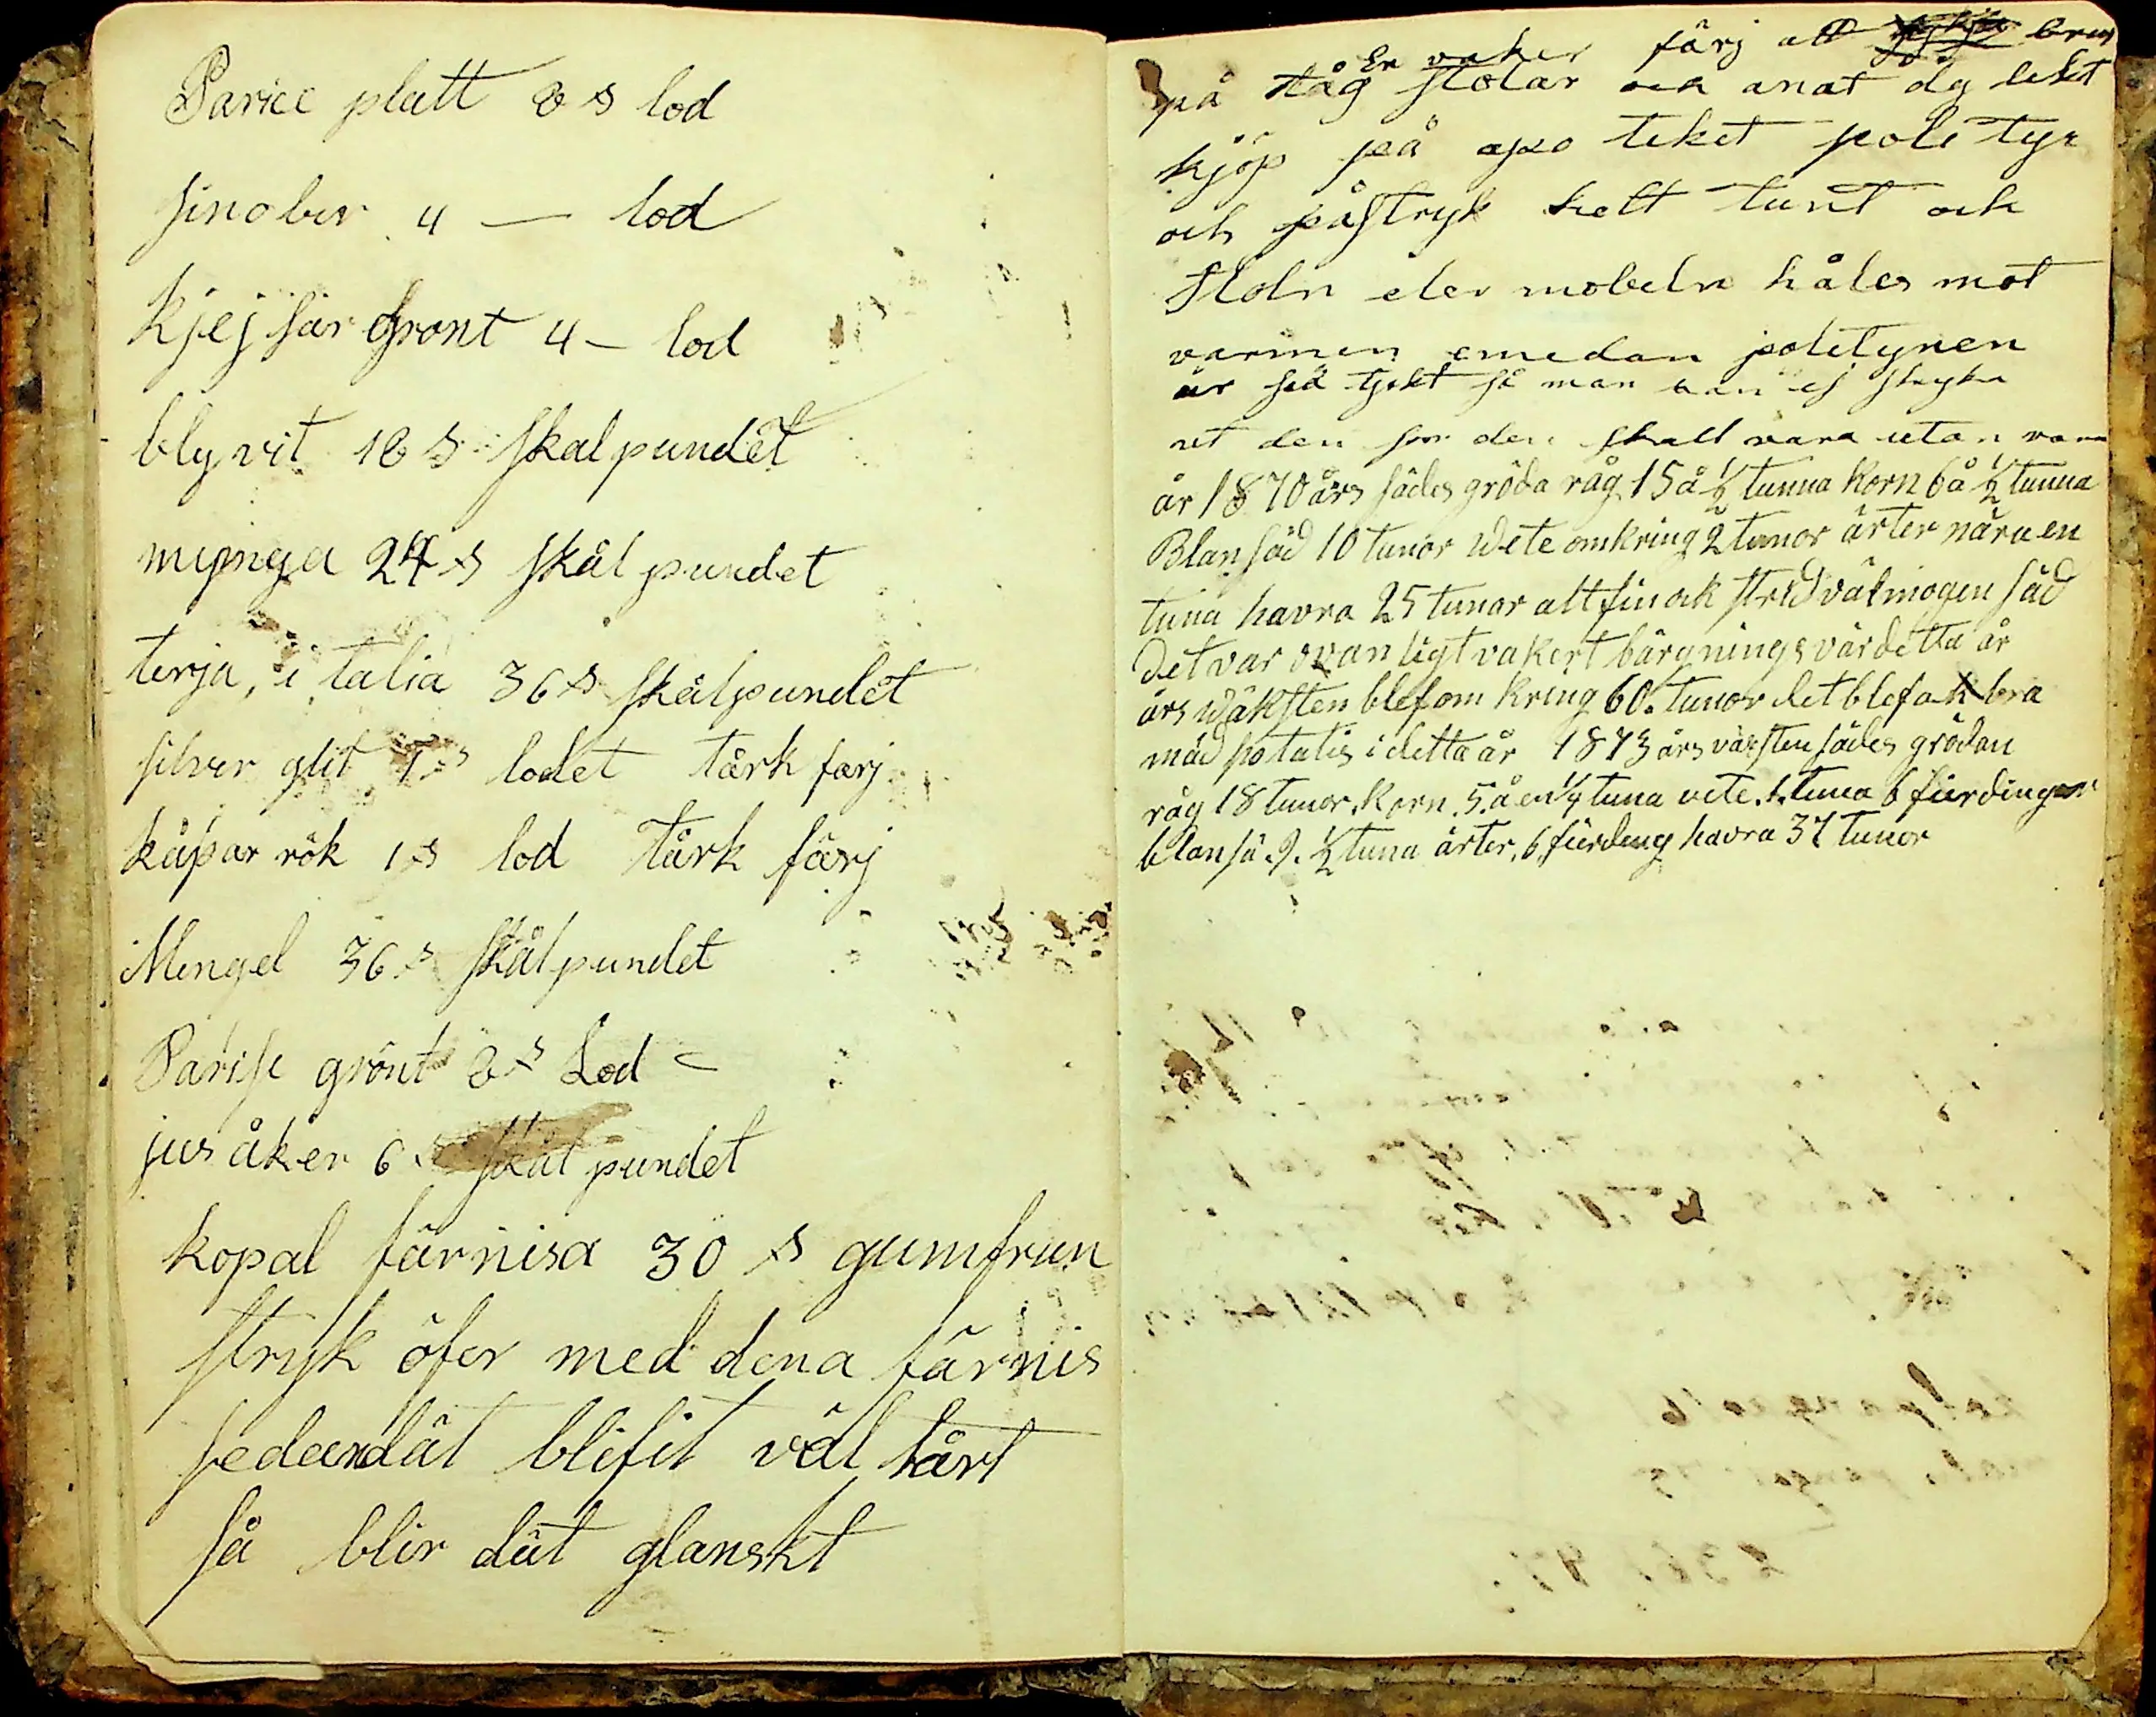 Parice platt 8 s lod
sinober 4 — lod
kjejsar Gront 4 — lod
bly vit 18 s skal pundet
mynga 24 s skål pundet
terja, i talia 36 s skålpundet
silver glit 1 s lodet tårk farj
kåpar rök 1 s lod tårk färj
Mengel 36 s skålpundet
Parise grönt 8 s Lod
jus åker 6 s skål pundet
kopal färnisa 30 s gumfrun
stryk öfer med dena färnis
sedandät blifit väl tårt
så blir dät glanskt
En vaker färj att
på tåg stolar och anat dy likt
kjöp på apo teket pole tyr
och påstryk helt tunt och
stoln eler mobeln håles mot
varmen emedan politynen
är så tjokt så man kan ej stryka
ut den som den skall vara utan varm
år 1870 års sädes gröda råg 15 å ½ tunna korn 6 å ½ tunna
Blansäd 10 tunor wete omkring 2 tunor ärter nära en
tuna havra 25 tunor alt fin ok strid välmogen säd
det var ovan ligt vakert bärgnings vär detta år
års wäksten blef om kring 60. tunor det blef ok bra
mäd potatis i detta år 1873 års växsten sädes grödan
råg 18 tunor. korn. 5. å en ½ tuna vete. 1. tuna 6 fjerdingar
blan sä. 9. ½ tuna ärter. 6. fjerding havra 37 tunor